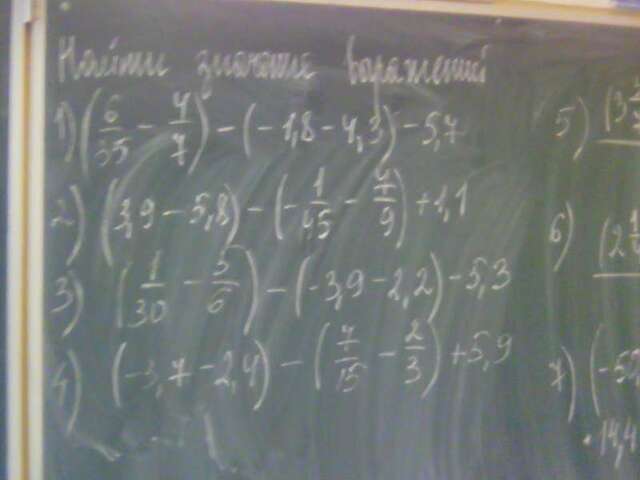 Найти значение выражений
1) (6/35 - 4/7) - (-1,8 - 4,3) - 5,7
2) (3,9 - 5,8) - (-1/45 - 4/9) + 1,1
3) (1/30 - 5/6) - (-3,9 - 2,2) - 5,3
4) (-3,7 - 2,4) - (7/15 - 2/3) + 5,9
5) (3
6) (2 1/
7) (-5
14,4